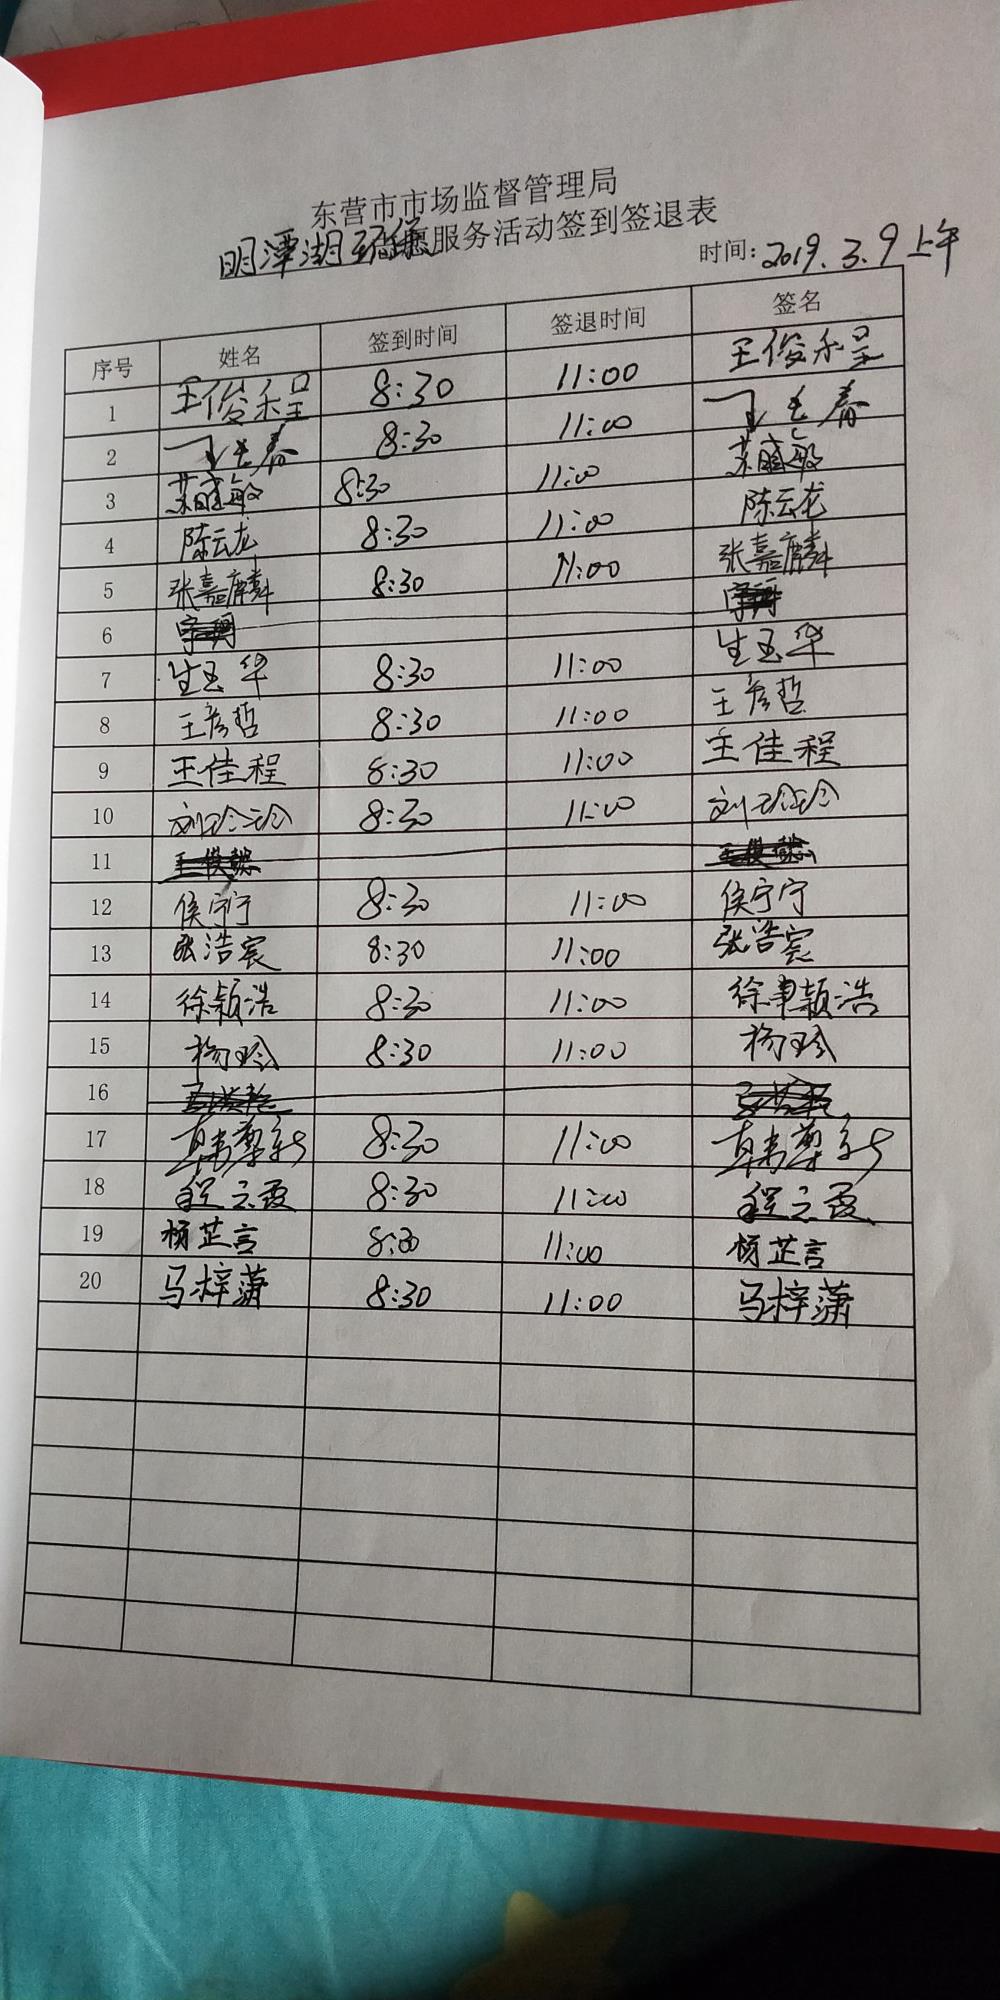 东营市市场监督管理局
明潭湖环保志愿服务活动签到签退表
时间：2019.3.9上午
序号 姓名 签到时间 签退时间 签名
1 王俊禾呈 8:30 11:00 王俊禾呈
2 8:30 11:00
3 苏盛敏 8:30 11:00 苏盛敏
4 陈云龙 8:30 11:00 陈云龙
5 张嘉麟 8:30 11:00 张嘉麟
6
7 生玉华 8:30 11:00 生玉华
8 王彦哲 8:30 11:00 王彦哲
9 王佳程 8:30 11:00 王佳程
10 刘玲玲 8:30 11:00 刘玲玲
11
12 侯宁宁 8:30 11:00 侯宁宁
13 张浩宸 8:30 11:00 张浩宸
14 徐颖浩 8:30 11:00 徐颖浩
15 杨玲 8:30 11:00 杨玲
16
17 8:30 11:00
18 程云霞 8:30 11:00 程云霞
19 杨芷言 8:30 11:00 杨芷言
20 马梓潇 8:30 11:00 马梓潇